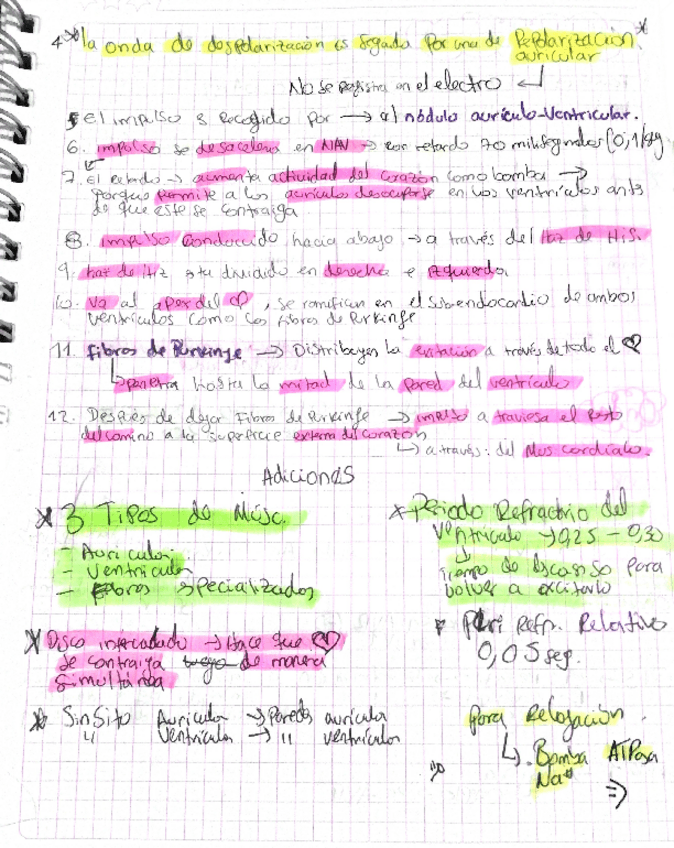 4* la onda de despolarización es segada por una de Repolarización *
auricular
No se registra en el electro ↵
5 El impulso s Recogido por → al nódulo aurículo-Ventricular.
6. impulso se desacelera en NAV → con retardo 70 milisegundos (0,1 seg
7. El retardo → aumenta actividad del corazón como bomba →
Porque permite a los aurículas desocuparse en los ventrículos antes
de que este se contraiga
8. impulso conducido hacia abajo → a través del Haz de His.
9. haz de Hiz sta dividido en derecha e izquierda
10. Va al apex del ♡, se ramifican en el subendocardio de ambos
ventrículos como las fibras de Purkinge
11. Fibras de Purkinge → Distribuyen la exitación a través de todo el ♡
↳ penetra hasta la mitad de la pared del ventrículo
12. Después de dejar Fibras de Purkinge → impulso atraviesa el Resto
del camino a la superficie externa del corazón
↳ a través: del Mus cardíaco.
Adiciones
* 3 Tipos de Músc.
- Auricular
- Ventricular
- Fibras specializados
* Disco intercalado → Hace que ♡
se contraiga de manera
simultánea
* Sinsito Auricular → Paredes auricular
" Ventricular → " ventricular
* Periodo Refractario del
Ventrículo → 0,25 - 0,30
↳ Tiempo de Descanso para
bolver a excitarlo
* Peri Refr. Relativo
0,05 seg.
para Relajación
↳ Bomba ATPasa
Na+